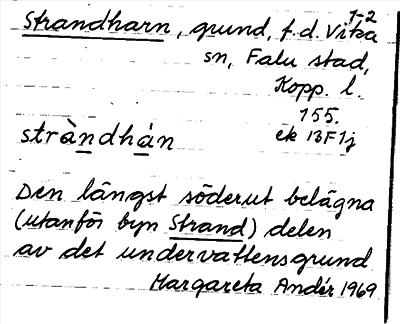 1-2
Strandharn, grund, f.d. Vika
sn, Falu stad,
Kopp. l.
155.
stràndhán ek 13F1j
Den längst söderut belägna
(utanför byn Strand) delen
av det undervattensgrund
Margareta Andér 1969